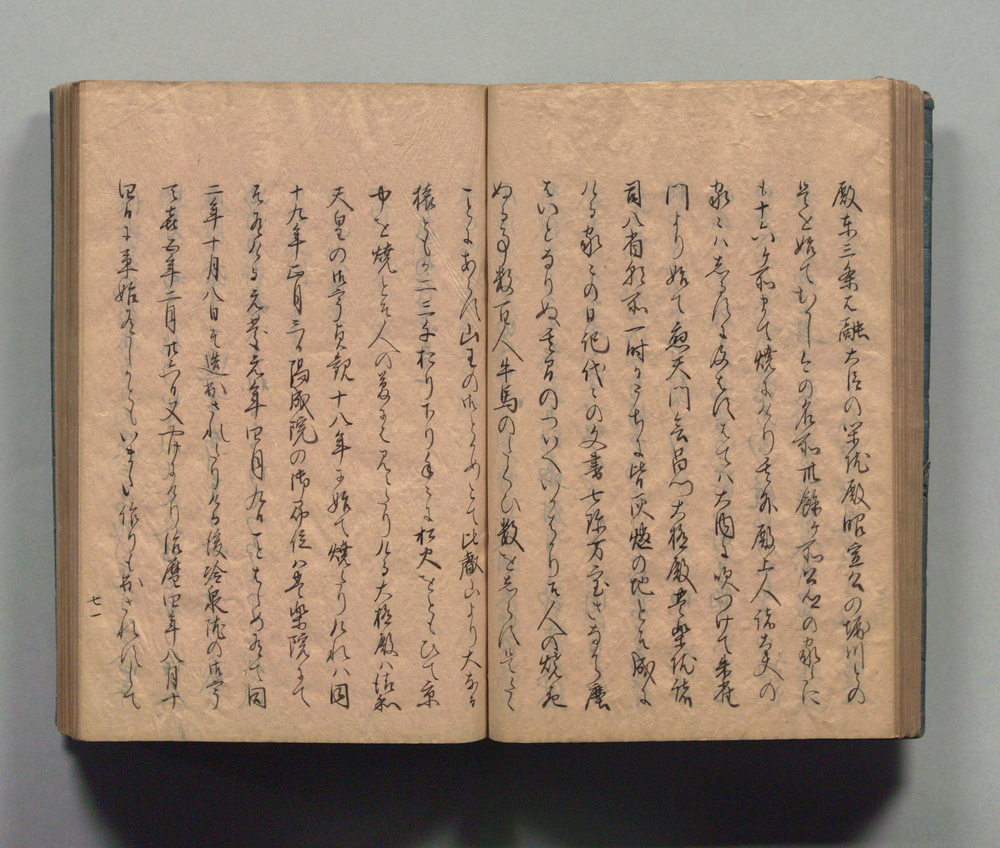 殿東三条又融大臣の河原院殿昭宣公の堀川との
是を始てむかし今の名所卅餘ケ所公卿の家たに
も十六ケ所まて焼にけり其外殿上人諸大夫の
家々はしるすに及はすはては大内に吹つけて朱雀
門より始て應天門會昌門大極殿豊楽院諸
司八省朝所一時かうちに皆灰燼の地とそ成に
ける家々の日記代々の文書七珍万宝さなから塵
はいとなりぬ其間のつゐへいかはかりそ人の焼死
ぬる事数百人牛馬のたくひ数をしらすたた
ことにあらす山王の御とかめとて比叡山より大なる
猿ともか二三千おりくたり手々に松火をともひて京
中を焼とそ人の夢にはみえたりける大極殿は清和
天皇の御宇貞観十八年に始て焼たりけれは同
十九年正月三日陽成院の御即位は豊楽院にて
そありける元慶元年四月九日ことはしめありて同
二年十月八日そ造出されたりける後冷泉院の御宇
天喜五年二月廿六日又焼にけり治暦四年八月十
四日事始ありしかともいまた作りも出されすして
七一